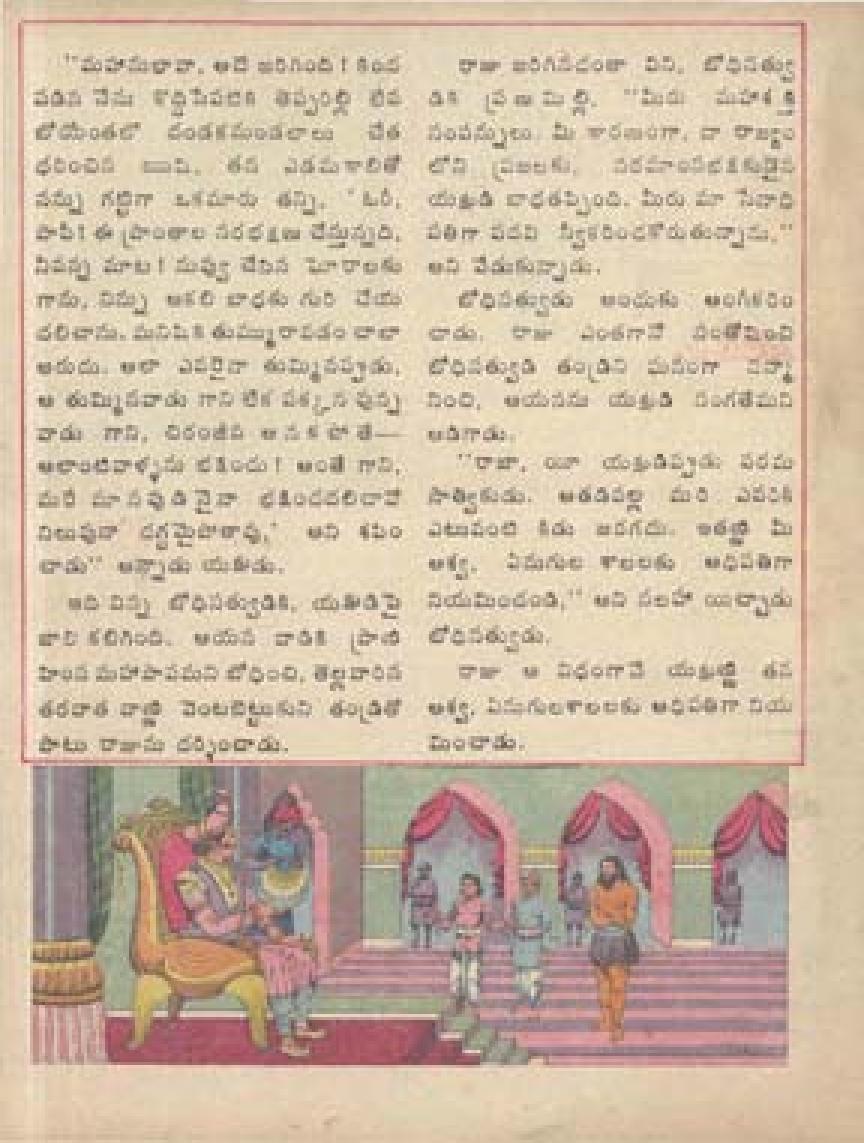 "మహానుభావా, అదే జరిగింది! కింద
పడిన నేను కొద్దిసేపటికి తెప్పరిల్లి లేవ
బోయేంతలో దండకమండలాలు చేత
ధరించిన ముని, తన ఎడమకాలితో
నన్ను గట్టిగా ఒకమారు తన్ని, 'ఓరీ,
పాపీ! ఈ ప్రాంతాల నరభక్షణ చేస్తున్నది,
నీవన్న మాట! నువ్వు చేసిన ఘోరాలకు
గాను, నిన్ను ఆకలి బాధకు గురి చేయ
దలిచాను. మనిషికి తుమ్ము రావడం చాలా
అరుదు. అలా ఎవరైనా తుమ్మినప్పుడు,
ఆ తుమ్మినవాడు గాని లేక పక్కన వున్న
వాడు గాని, చిరంజీవ అనకపోతే—
అలాంటివాళ్ళను భక్షించు! అంతే గాని,
మరే మానవుడినైనా భక్షించదలిచావో
నిలువునా దగ్ధమైపోతావు,' అని శపిం
చాడు" అన్నాడు యక్షుడు.
అది విన్న బోధిసత్వుడికి, యక్షుడిపై
జాలి కలిగింది. ఆయన వాడికి ప్రాణి
హింస మహాపాపమని బోధించి, తెల్లవారిన
తరవాత వాణ్ణి వెంటబెట్టుకుని తండ్రితో
పాటు రాజును దర్శించాడు.
రాజు జరిగినదంతా విని, బోధిసత్వు
డికి ప్రణమిల్లి, "మీరు మహాశక్తి
సంపన్నులు. మీ కారణంగా, నా రాజ్యం
లోని ప్రజలకు, నరమాంసభక్షకుడైన
యక్షుడి బాధతప్పింది. మీరు మా సేనాధి
పతిగా పదవి స్వీకరించకోరుతున్నాను,"
అని వేడుకున్నాడు.
బోధిసత్వుడు అందుకు అంగీకరిం
చాడు. రాజు ఎంతగానో సంతోషించి
బోధిసత్వుడి తండ్రిని ఘనంగా సన్మా
నించి, ఆయనను యక్షుడి సంగతేమని
అడిగాడు.
"రాజా, యీ యక్షుడిప్పుడు పరమ
సాత్వికుడు. అతడివల్ల మరి ఎవరికీ
ఎటువంటి కీడు జరగదు. ఇతణ్ణి మీ
అశ్వ, ఏనుగుల శాలలకు అధిపతిగా
నియమించండి," అని సలహా యిచ్చాడు
బోధిసత్వుడు.
రాజు ఆ విధంగానే యక్షుణ్ణి తన
అశ్వ, ఏనుగులశాలలకు అధిపతిగా నియ
మించాడు.